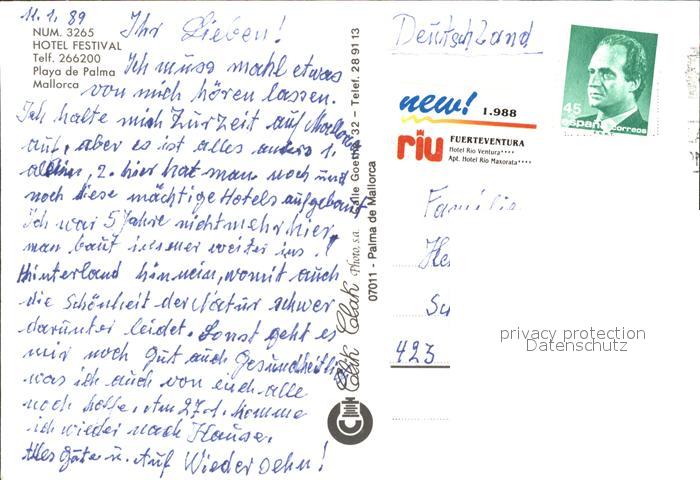 11.1.89
NUM. 3265
HOTEL FESTIVAL
Telf. 266200
Playa de Palma
Mallorca
Ihr Lieben!
Ich muss mahl etwas
von mich hören lassen.
Ich halte mich Zurzeit auf Mallorca
auf, aber es ist alles anders 1.
allein, 2. hier hat man noch und
noch diese mächtige Hotels aufgebaut
Ich war 5 Jahre nicht mehr hier,
man baut immer weiter ins
Hinterland hinnein, womit auch
die Schönheit der Natur schwer
darunter leidet. Sonst geht es
mir noch gut auch Gesundheitlich
was ich auch von euch alle
noch hoffe. Am 27.1. komme
ich wieder nach Hause.
Alles Gute u. Auf Wiedersehn!
Clik Clak Photo, s.a. Calle Goethe, 32 – Telef. 28 91 13
07011 - Palma de Mallorca
Deutschland
45
españa correos
new! 1.988
riu
FUERTEVENTURA
Hotel Rio Ventura****
Apt. Hotel Rio Maxorata****
Familie
He
Su
423
privacy protection
Datenschutz